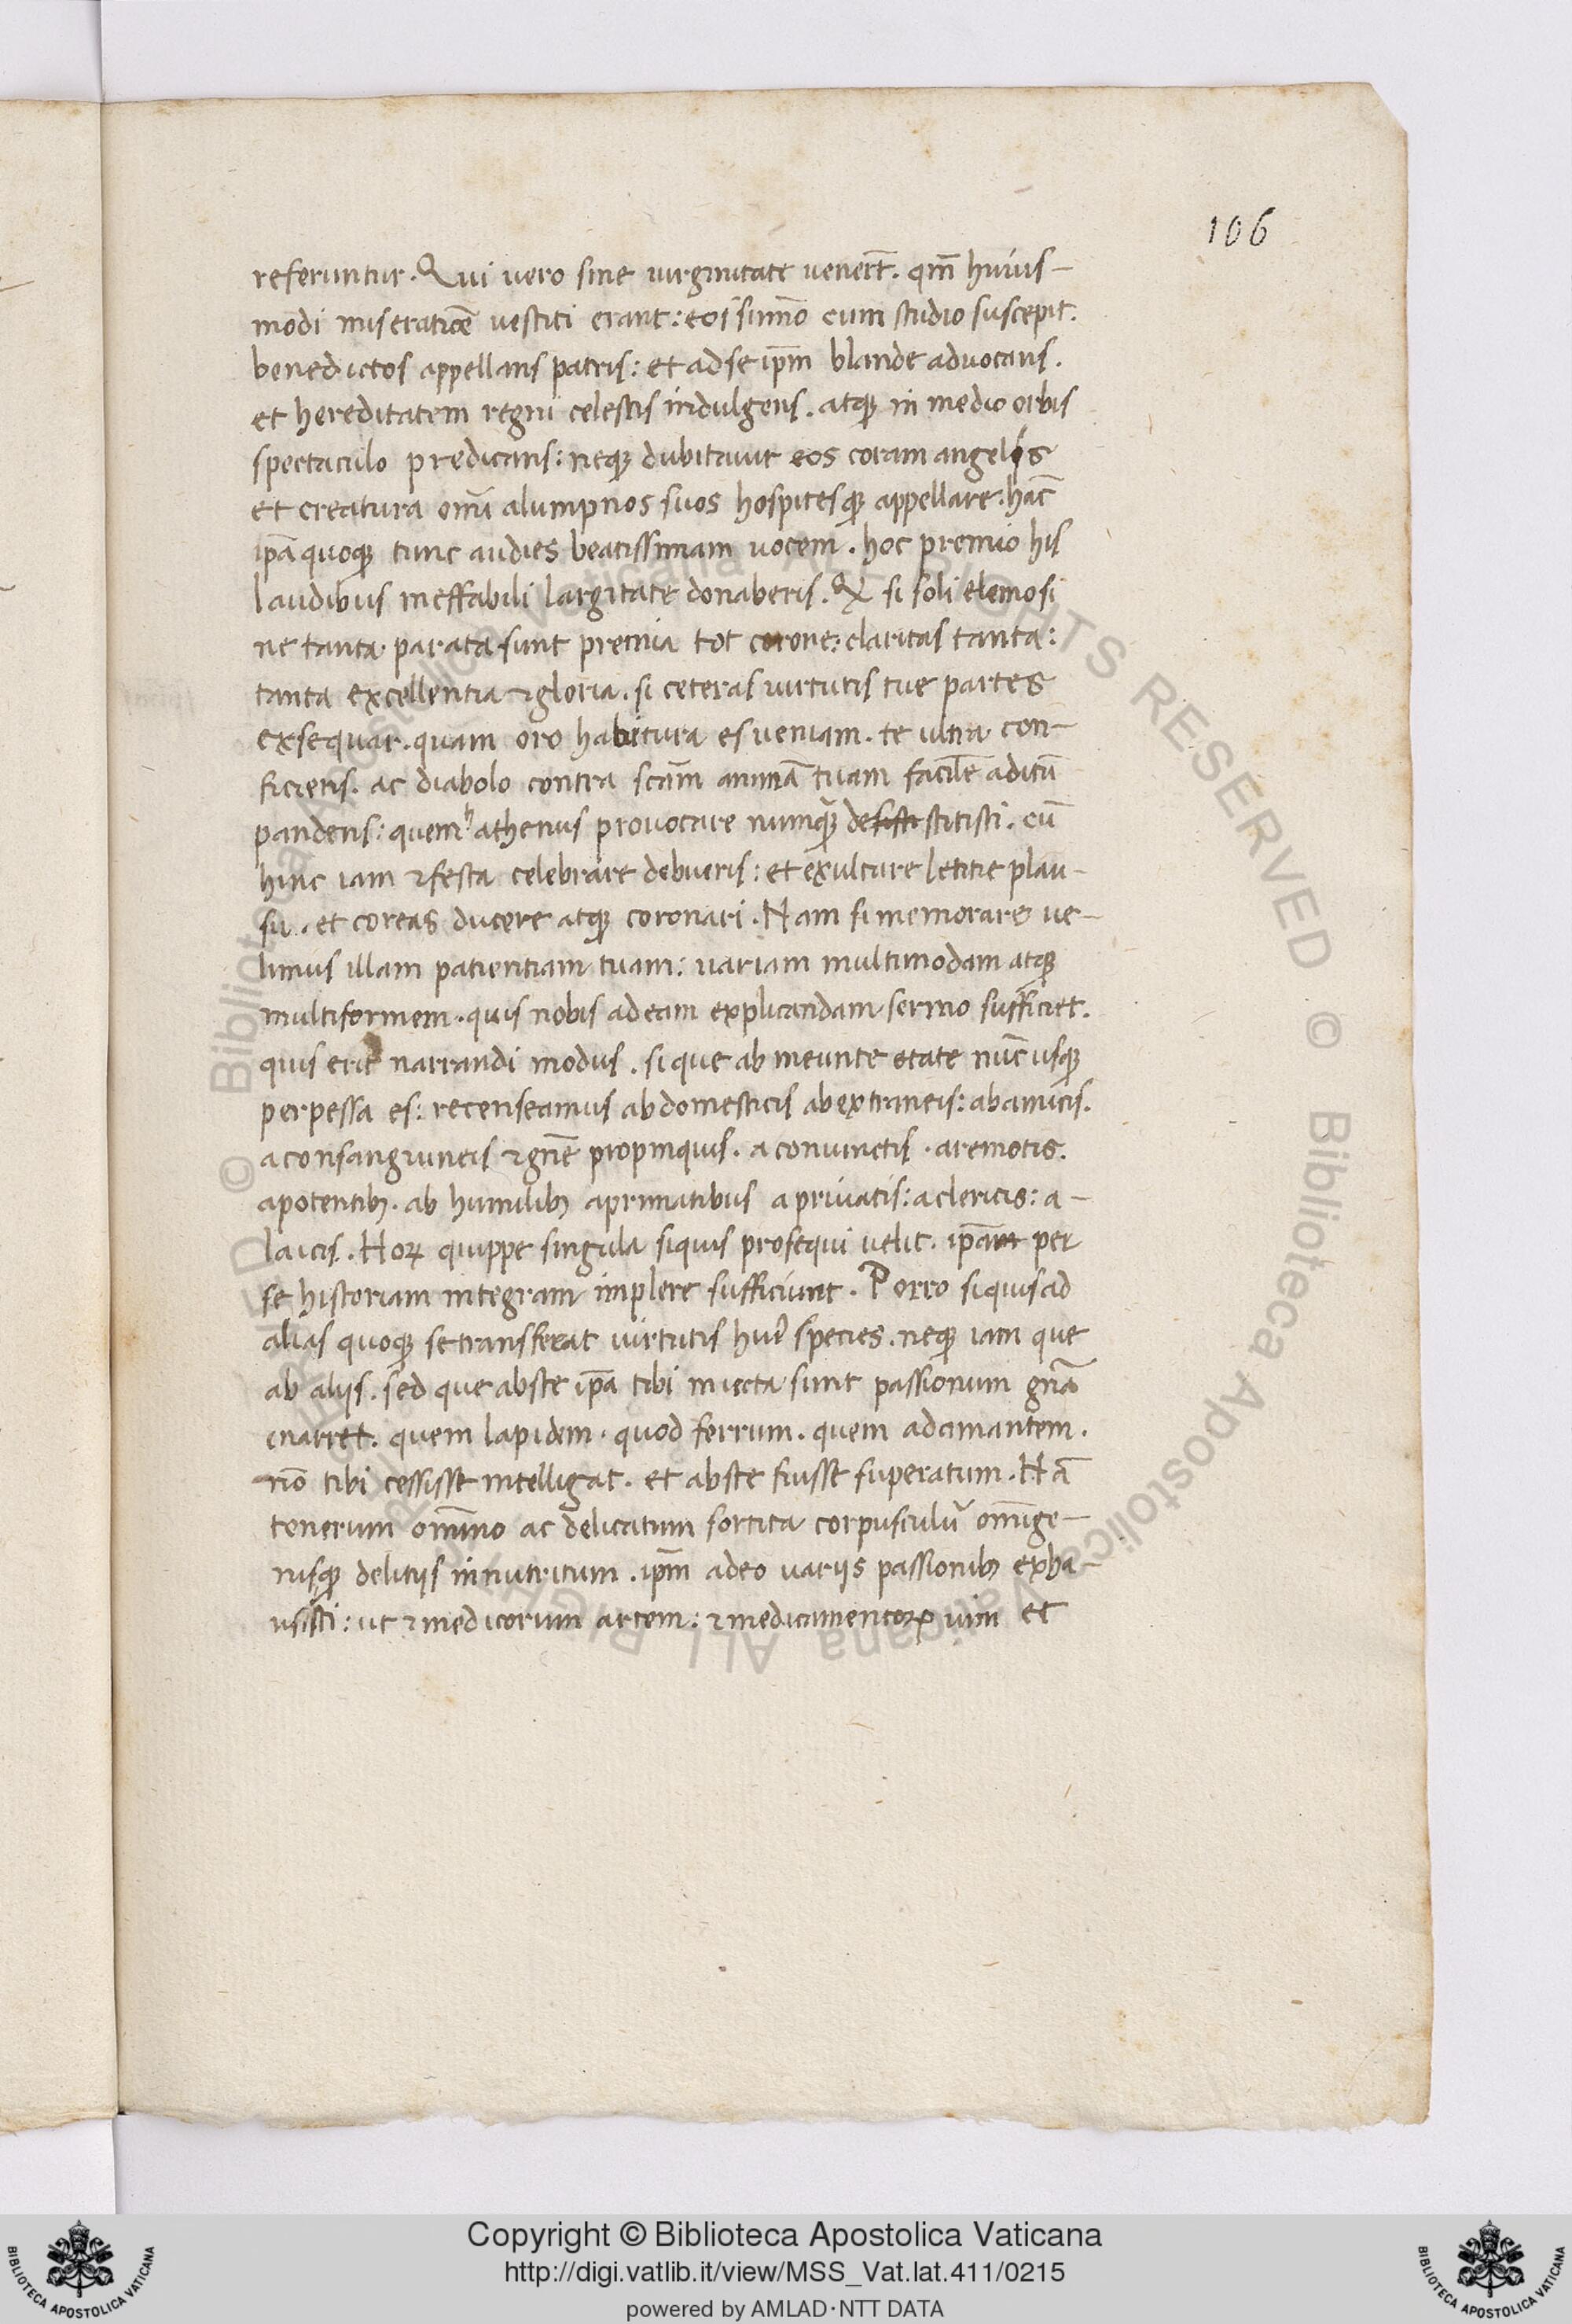 106
referuntur. Qui vero sine uirginitate venert̄. qm̄ huius-
modi miseratiōe vestiti erant: eos sum̄o cum studio suscepit.
benedictos appellans patris: et ad se ip̄m blande advocans.
et hereditatem regni celestis indulgens. atqꝫ in medio orbis
spectaculo predicans: neqꝫ dubitauit eos coram angelis
et creatura om̄i alumpnos suos hospitesqꝫ appellare. hāc
ip̄a quoqꝫ tunc audies beatissimam uocem. hoc premio his
laudibus ineffabili largitate donaberis. Qꝫ si soli elemosi
ne tanta parata sunt premia tot corone: claritas tanta:
tanta excellentia ⁊ gloria. si ceteras uirtutis tue partes
exsequar. quam oro habitura es ueniam. te ultra con-
ficietis. ac diabolo contra sc̄am animā tuam facilē aditū
pandens: quem hathenus prouocare numquā destitisti. cū
hinc iam ⁊ festa celebrare debueris: et exultare letitie plau-
su. et coreas ducere atqꝫ coronari. Nam si memorare ue-
limus illam patientiam tuam: uariam multimodam atqꝫ
multiformem. quis nobis ad eam explicandam sermo sufficiet.
quis erit narrandi modus. si que ab ineunte etate nūc usqꝫ
perpessa es: recenseamus ab domesticis ab extraneis: ab amicis.
a consanguineis ⁊ gn̄e propinquis. a coniunctis. a remotis.
a potentibꝫ. ab humilibꝫ a primatibus a priuatis: a clericis: a-
laicis. Hoꝝ quippe singula siquis prosequi uelit. ip̄am per
se historiam integram implere sufficiunt. Porro siquis ad
alias quoqꝫ se transferat uirtutis huiꝰ species. neqꝫ iam que
ab aliis. sed que abs te ip̄a tibi inuecta sunt passionum gn̄a
enarret. quem lapidem. quod ferrum. quem adamantem.
nō tibi cessisse intelligat. et abs te fuisse superatum. Nā
tenerum om̄ino ac delicatum sortita corpusculū om̄ige-
nisqꝫ delitiis innutritum. ip̄m adeo uariis passionibꝫ exha-
usisti: ut ⁊ medicorum artem: ⁊ medicamentoꝝ uim et
© Biblioteca Apostolica Vaticana ALL RIGHTS RESERVED
© Biblioteca Apostolica Vaticana ALL RIGHTS RESERVED
Copyright © Biblioteca Apostolica Vaticana
http://digi.vatlib.it/view/MSS_Vat.lat.411/0215
powered by AMLAD·NTT DATA
BIBLIOTECA APOSTOLICA VATICANA
BIBLIOTECA APOSTOLICA VATICANA